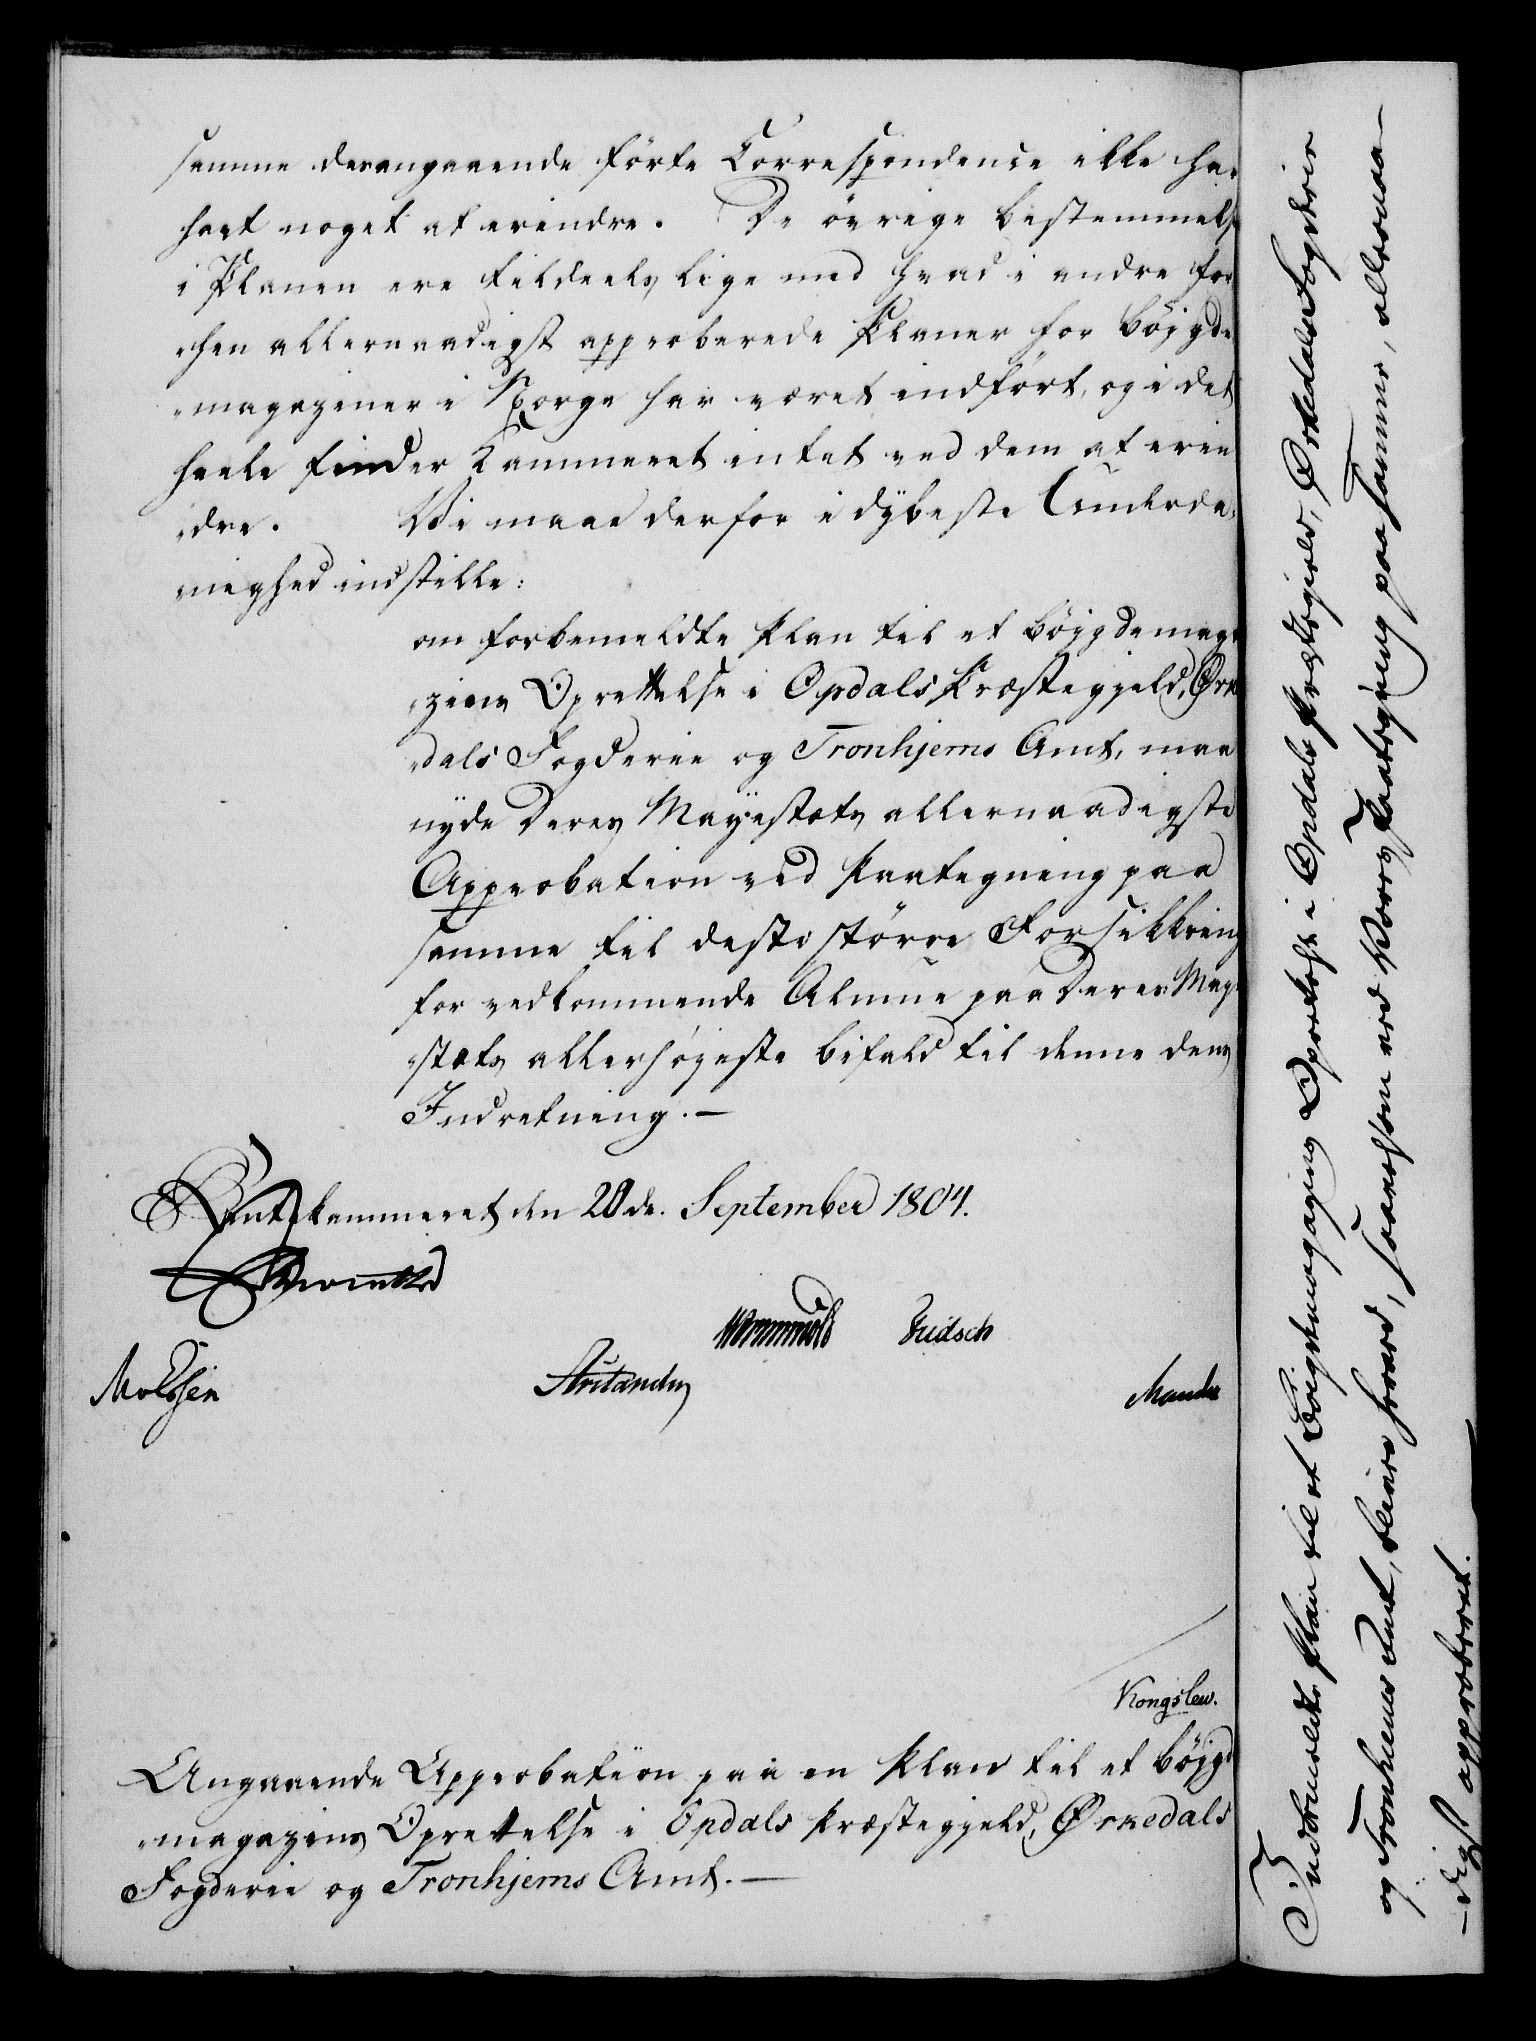 samme desangaaende förte Correspondence ikke har
havt noget at erindre. De övrige bestemmels
i Planen ere tildeels lige med hvad i andre for
hen allernaadigst approberede Planer for böigde
magaziner i Norge har været indfört, og i det
heele finder Kammeret intet ved dem at erin
dre. Vi maae derfor i dÿbeste Underda
nighed indstille:
om forbemeldte Plan til et böÿgdemaga
zins Oprettelse i Opdals Præstegjeld, Ørke
dals Fogderie og Tronhjems Amt, maa
nÿde Deres Majestæts allernaadigste
Approbation ved Paategning paa
samme til desto större Forsikkring
for vedkommende Almue paa Deres Maje
stæts allerhøÿeste bifald til denne dens
Indretning. —
Rentekammeret den 20de. September 1804.
Reventlow
Wormskiold Fridsch
Moldsen Arstanden Mandix
Kongslew.
Angaaende Approbation paa en Plan til et böÿgd
magazins Oprettelse i Opdals Præstegjeld, Ørkedals
Fogderie og Tronhjems Amt. —
Indbemeldte Plan til et Bøigdemagazins Oprettelse i Opdals Præstegield, Ørkedals Fogderie
og Tronhiems Amt, bliver hvad, saasom ved Vores Paategning paa samme, allernaa-
-digst approberet.